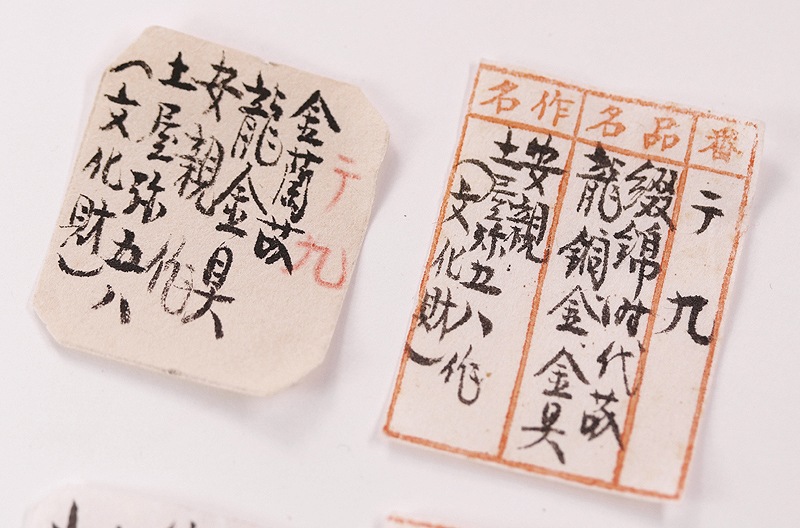 テ九
金蘭
龍金具
安親作
土屋弥五八
(文化財)
番
品名
作名
テ九
綴錦時代
龍銅金金具
安親
土屋弥五八作
(文化財)